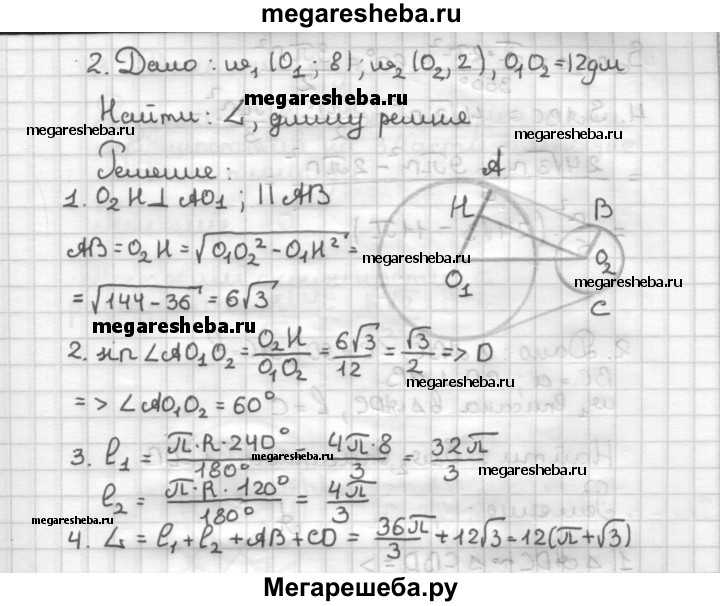 megaresheba.ru
2. Дано: ω₁ (O₁; 8); ω₂ (O₂, 2), O₁O₂ = 12 дм
megaresheba.ru
Найти: L, длину ремня
megaresheba.ru
megaresheba.ru
Решение:
1. O₂H ⊥ AO₁; || AB
A
H
B
O₁
O₂
C
megaresheba.ru
AB = O₂H = √(O₁O₂² - O₁H²) =
= √(144 - 36) = 6√3
megaresheba.ru
2. sin ∠AO₁O₂ = O₂H/O₁O₂ = 6√3/12 = √3/2 => D
megaresheba.ru
=> ∠AO₁O₂ = 60°
3. l₁ = π·R·240°/180° = 4π·8/3 = 32π/3
megaresheba.ru
megaresheba.ru
l₂ = π·R·120°/180° = 4π/3
megaresheba.ru
4. L = l₁ + l₂ + AB + CD = 36π/3 + 12√3 = 12(π + √3)
megaresheba.ru
Мегарешеба.ру